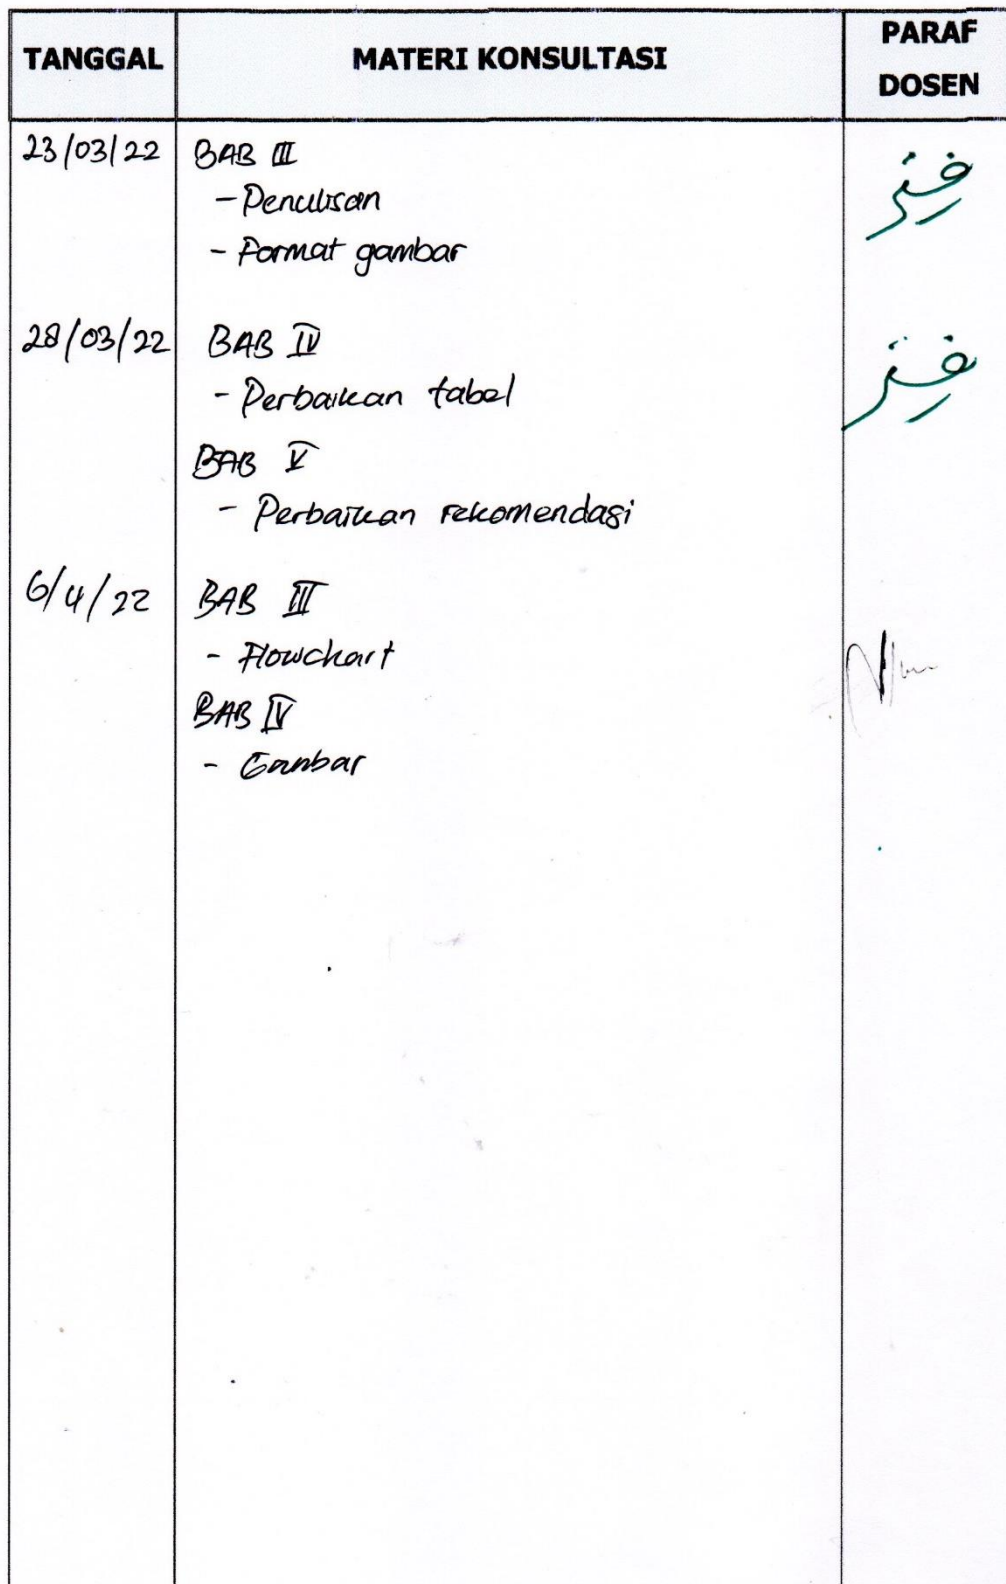 TANGGAL MATERI KONSULTASI PARAF DOSEN
23/03/22 BAB III
- Penulisan
- Format gambar
28/03/22 BAB IV
- Perbaikan tabel
BAB V
- Perbaikan rekomendasi
6/4/22 BAB III
- Flowchart
BAB IV
- Gambar